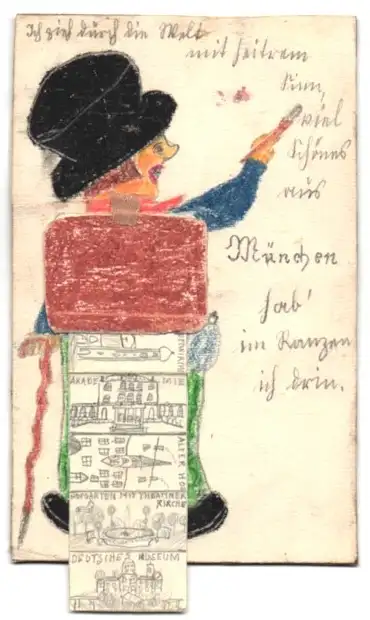 Ich zieh durch die Welt
mit heitrem
Sinn,
viel
Schönes
aus
München
hab'
im Ranzen
ich drin.
AKADEMIE
ALTER HOF
HOFGARTEN MIT THEATINER
KIRCHE
DEUTSCHES MUSEUM